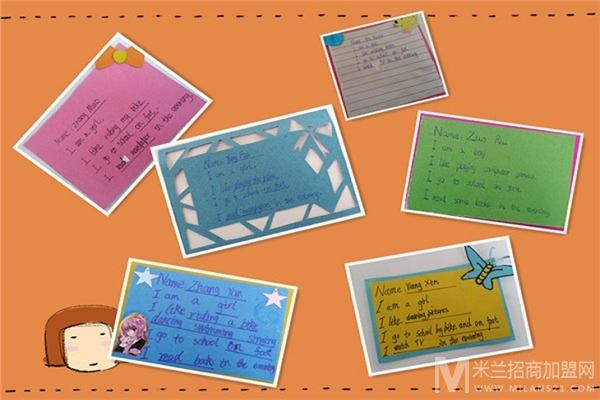 Name: Zhang Miao
I am a girl.
I like riding my bike
I go to school on foot.
I read in the evening.
I am a girl.
I go to school on foot
I watch TV in the evening
Name:
I am a girl.
I like
I go to school on foot.
I read in the evening.
Name:
I am a boy
I like playing computer games.
I go to school on foot
I read some books in the evening
Name: Zhang Yan
I am a girl
I like riding a bike
dancing swimming singing
I go to school on foot
I read books in the evening
Name: Xin
I am a girl
I like drawing pictures
I go to school by bike and on foot.
I watch TV in the evening
米兰招商加盟网
WWW.MILAN521.COM